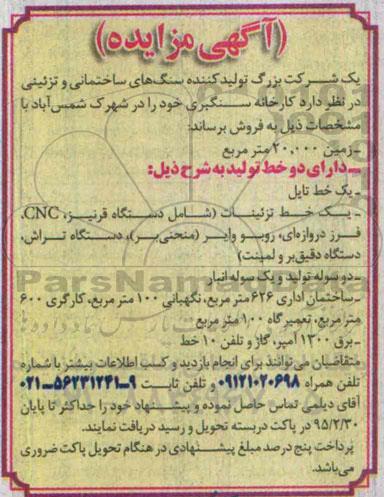 (آگهی مزایده)
یک شرکت بزرگ تولیدکننده سنگ‌های ساختمانی و تزئینی
در نظر دارد کارخانه سنگبری خود را در شهرک شمس‌آباد با
مشخصات ذیل به فروش برساند:
ـ زمین ۲۰،۰۰۰ متر مربع
ـ دارای دو خط تولید به شرح ذیل:
ـ یک خط تایل
ـ یک خط تزئینات (شامل دستگاه قرنیز، CNC،
فرز دروازه‌ای، روبو وایر (منحنی‌بر)، دستگاه تراش،
دستگاه دقیق‌بر و لمینت)
ـ دو سوله تولید و یک سوله انبار
ـ ساختمان اداری ۶۲۶ متر مربع، نگهبانی ۱۰۰ متر مربع، کارگری ۶۰۰
متر مربع، تعمیرگاه ۱۰۰ متر مربع
ـ برق ۱۲۰۰ آمپر، گاز و تلفن ۱۰ خط
متقاضیان می‌توانند برای انجام بازدید و کسب اطلاعات بیشتر با شماره
تلفن همراه ۰۹۱۲۱۰۲۰۶۹۸ و تلفن ثابت ۹-۵۶۲۳۱۲۴۱-۰۲۱
آقای دیلمی تماس حاصل نموده و پیشنهاد خود را حداکثر تا پایان
۹۵/۲/۳۰ در پاکت دربسته تحویل و رسید دریافت نمایند.
پرداخت پنج درصد مبلغ پیشنهادی در هنگام تحویل پاکت ضروری
می‌باشد.
ParsNamadData